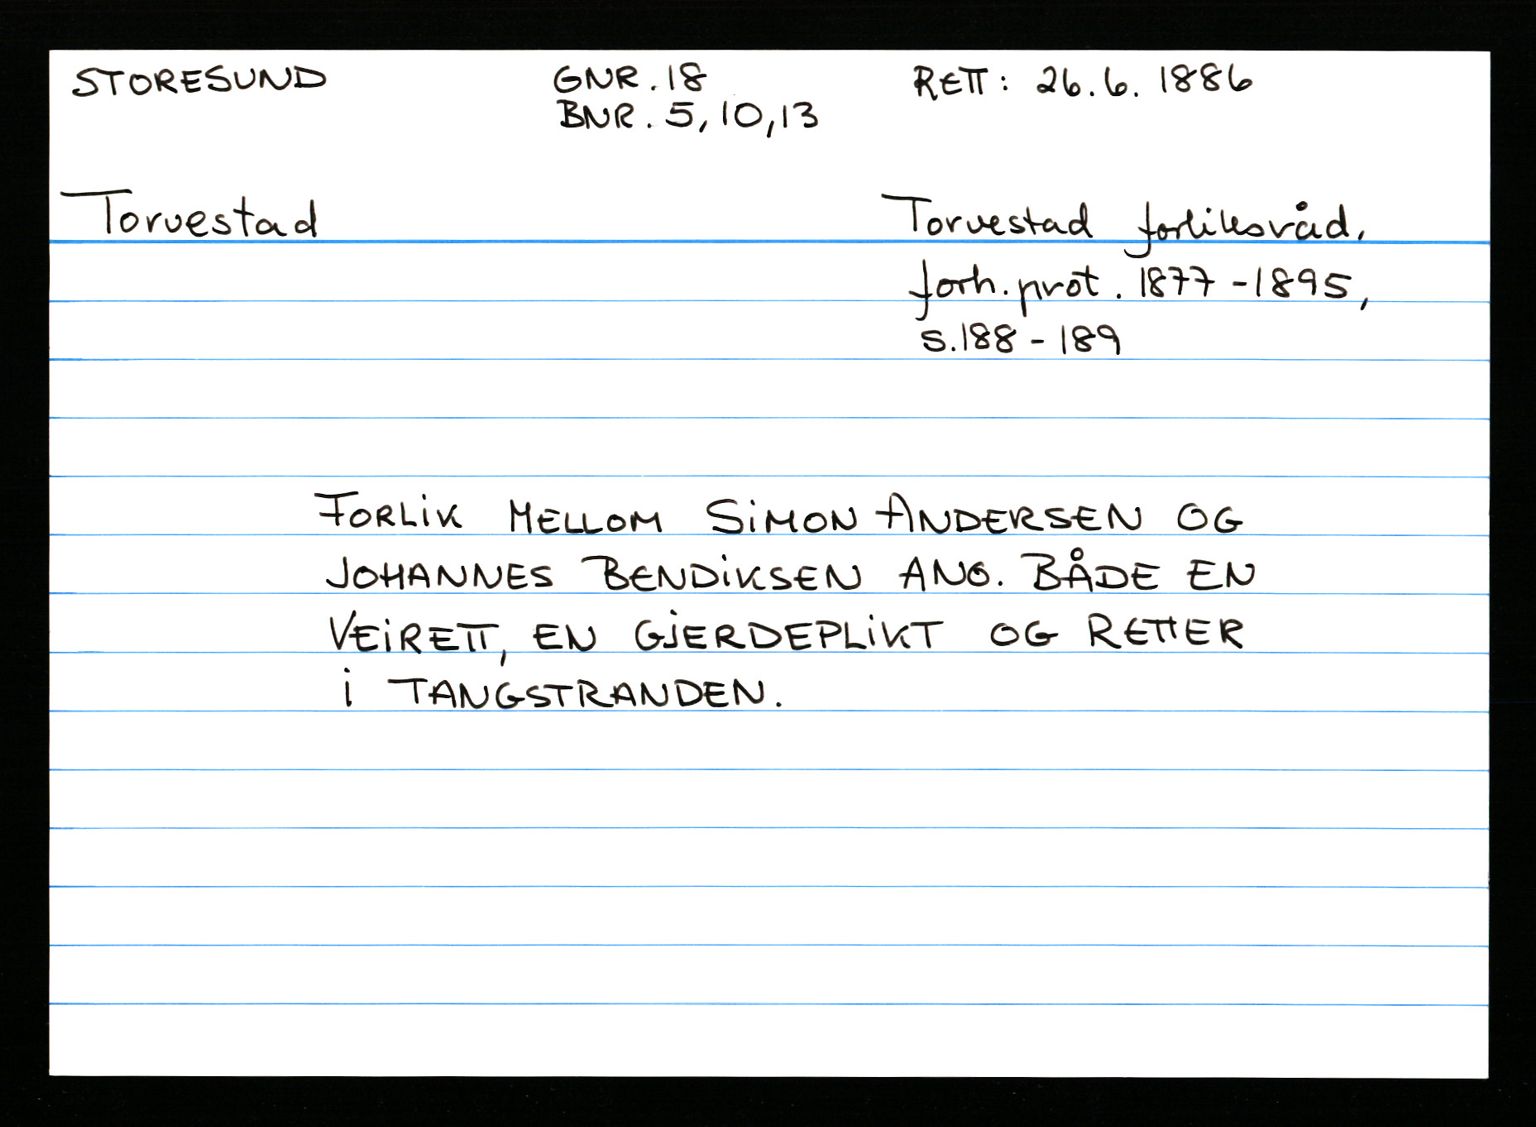 STORESUND GNR. 18 RETT: 26.6. 1886
BNR. 5, 10, 13
Torvestad Torvestad forliksråd,
forh. prot. 1877 - 1895,
s. 188 - 189
FORLIK MELLOM SIMON ANDERSEN OG
JOHANNES BENDIKSEN ANG. BÅDE EN
VEIRETT, EN GJERDEPLIKT OG RETTER
I TANGSTRANDEN.